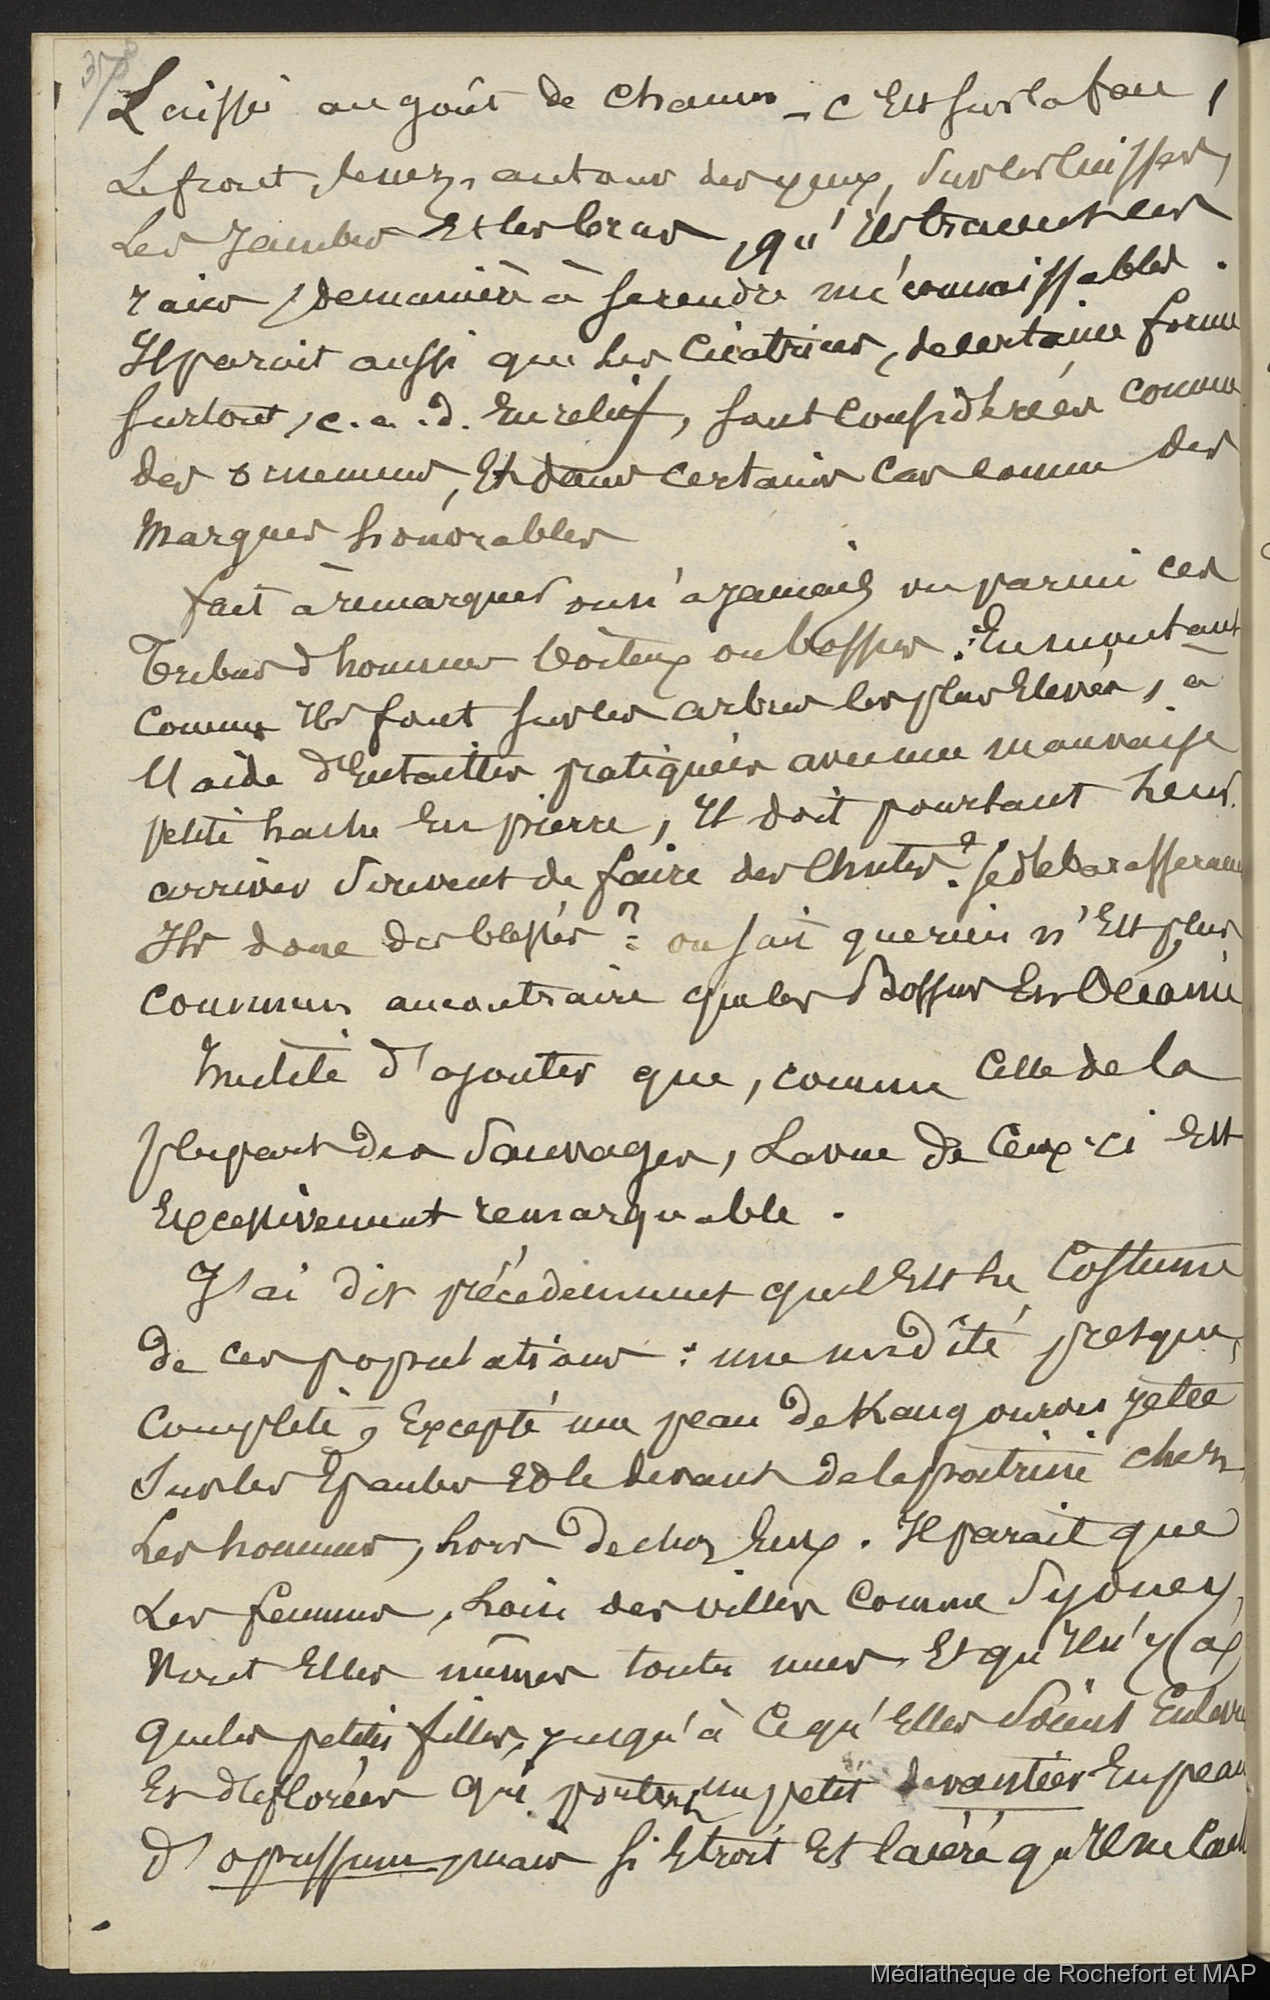 Laissé au goût de chacun _ c'est sur la face,
Le front, le nez, autour des yeux, sur les cuisses,
Les jambes et les bras, qu'ils tracent ces
raies, de manière à se rendre méconnaissables.
Il parait aussi que les cicatrices, de certaine forme
surtout, c. a. d. en relief, sont considérées comme
des ornemens, et dans certains cas comme des
marques honorables
fait à remarquer on n'a jamais vu parmi ces
Tribus d'hommes boiteux ou bossus. En montant
comme ils font sur les arbres les plus élevés, à
l'aide d'entailles pratiquées avec une mauvaise
petite hache en pierre, il doit pourtant leur
arriver souvent de faire des chutes? se débarasseraient
Ils donc des blessés? on sait que rien n'est plus
commun au contraire que les Bossus en Océanie
Inutile d'ajouter que, comme celle de la
plupart des sauvages, la vue de ceux-ci est
Excessivement remarquable.
J'ai dit précédemment quel est le costume
de ces populations : une nudité presque
complète, Excepté une peau de Kangourou jetée
sur les épaules et le devant de la poitrine chez
Les hommes, hors de chez eux. Il parait que
Les femmes, loin des villes comme Sydney,
vont elles mêmes toutes nues et qu'il n'y a
que les petites filles, jusqu'à ce qu'elles soient enlevées
et déflorées qui portent un petit devantier en peau
d'opussum, mais si étroit et lacéré qu'il ne
Médiathèque de Rochefort et MAP